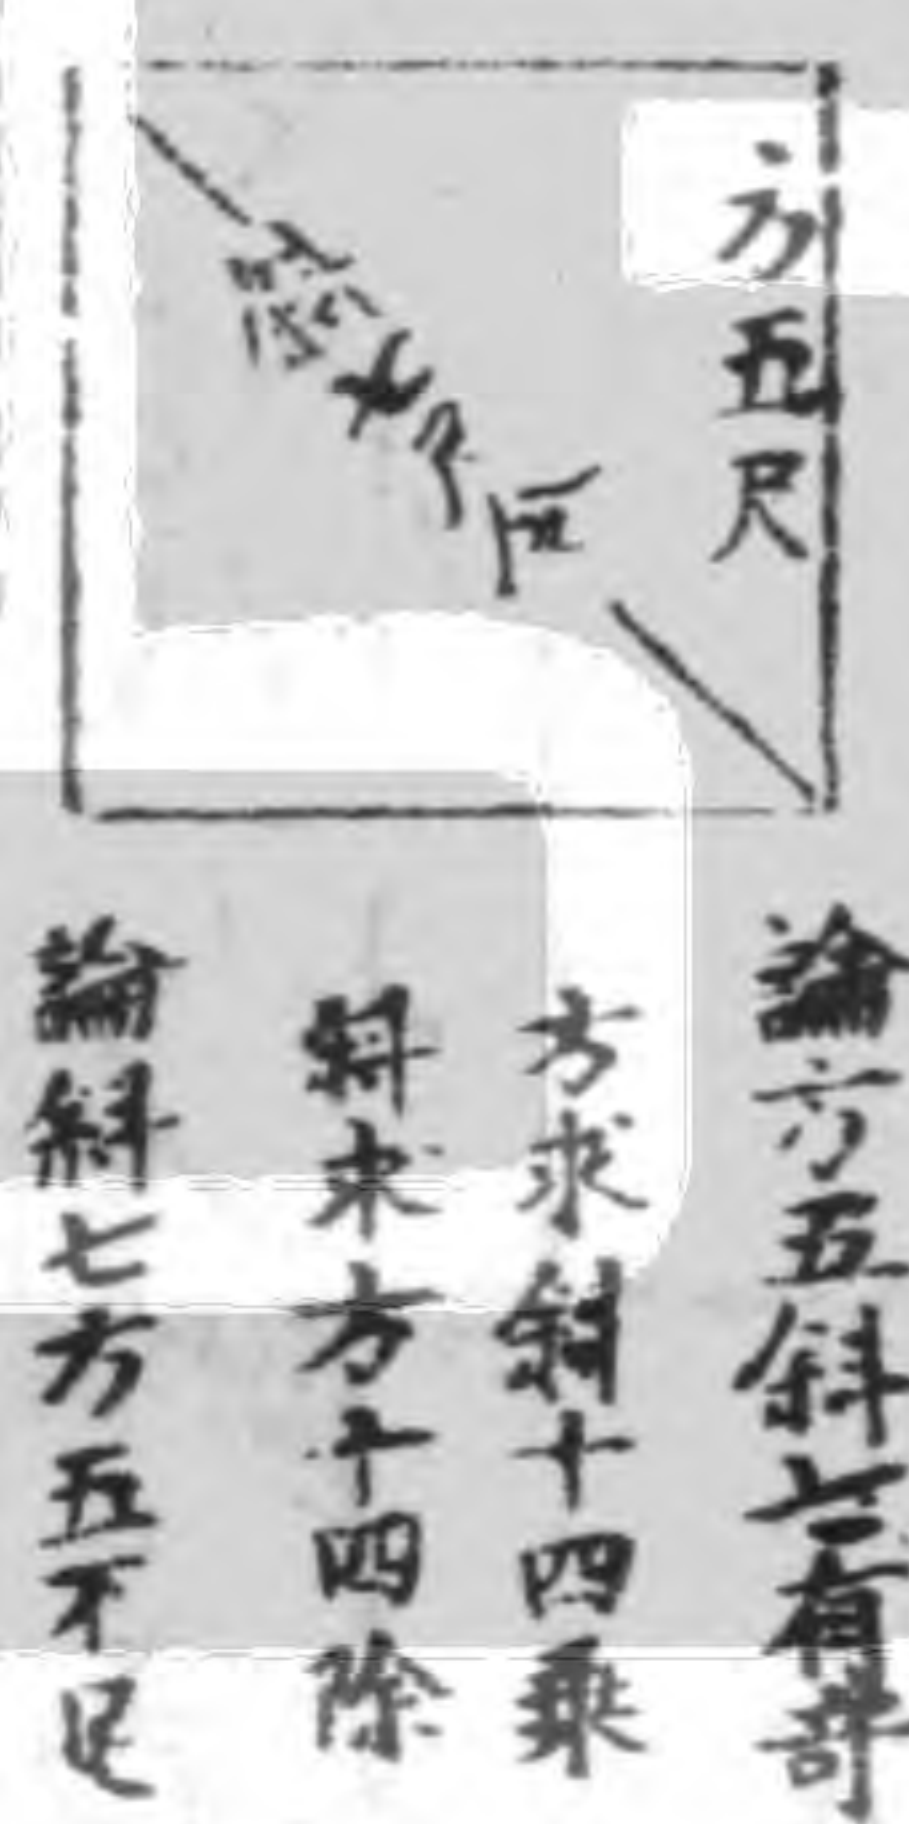 方五尺
論方五斜七有奇
方求斜十四乘
斜求方十四除
論斜七方五不足